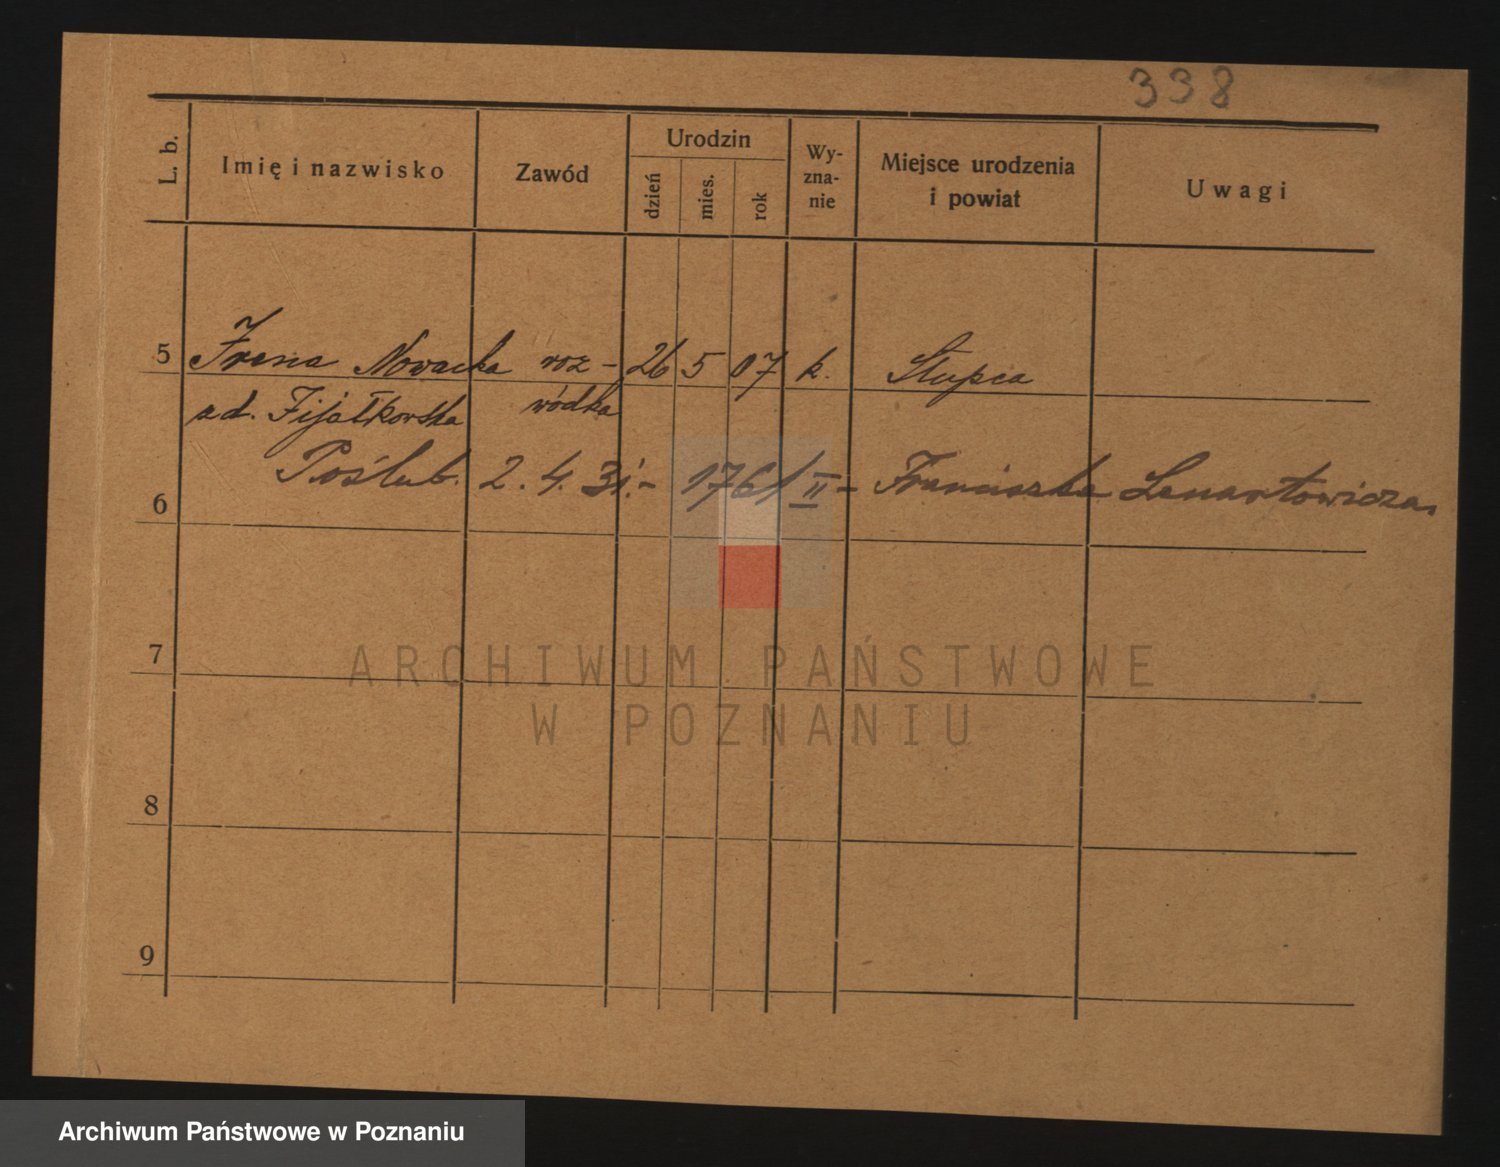 338
L. b. Imię i nazwisko Zawód Urodzin dzień mies. rok Wy-zna-nie Miejsce urodzenia i powiat Uwagi
5 Irena Nowacka roz- 26 5 07 k. Słupca
zd. Fijałkowska wódka
Poślub. 2. 4. 31.- 1761/II - Franciszka Lenartowicza.
6
7
ARCHIWUM PAŃSTWOWE
W POZNANIU
8
9
Archiwum Państwowe w Poznaniu